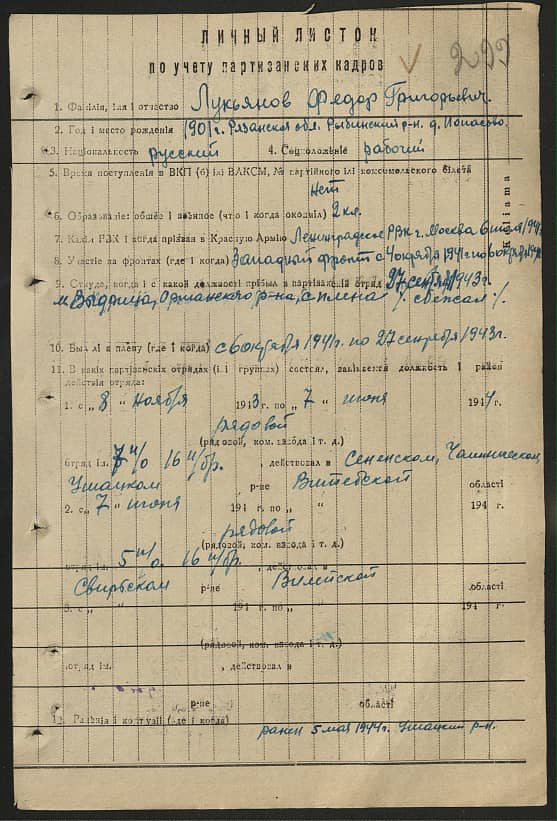 ЛИЧНЫЙ ЛИСТОК
по учету партизанских кадров
292
1. Фамілія, імя і отчество Лукьянов Федор Григорьевич.
2. Год і место рождения 1901 г. Рязанская обл. Рыбинский р-н. д.
3. Національность русский 4. Соцположеніе рабочий
5. Время поступленія в ВКП (б) ілі ВЛКСМ, № партійного ілі комсомольского білета
нет
6. Образованіе: общее і военное (что і когда окончіл) 2 кл.
7. Какім РВК і когда прізван в Красную Армію Ленинградское РВК г. Москва 6 июля 1941
8. Участіе на фронтах (где і когда) Западный фронт с 4 октября 1941 г. по 6 октября 1941
9. Откуда, когда і с какой должності прібыл в партізанскій отряд 27 сентября 1943 г.
м. Выдрица, Оршанского р-на, с плена / сбежал /.
10. Был лі в плену (где і когда) с 6 октября 1941 г. по 27 сентября 1943 г.
11. В какіх партізанскіх отрядах (і і группах) состоял, занімаемая должность і район
действія отряда:
1. с „ 8 " ноября 1943 г. по „ 7 " июня 1944 г.
рядовой
(рядовой, ком. взвода і т. д.)
отряд ім. 7 п/о 16 п/бр. , действовал в Сененском, Чашникском,
Ушацком р-не Витебской області
2. с „ 7 " июня 194 г. по „ " 194 г.
рядовой
(рядовой, ком. взвода і т. д.)
отряд ім. 5 п/о. 16 п/бр. , действовал в
Свирьском р-не Вилейской області
3. с „ " 194 г. по „ " 194 г.
(рядовой, ком. взвода і т. д.)
отряд ім. , действовал в
р-не області
12. Раненія и контузіі (где і когда)
ранен 5 мая 1944 г. Ушацкий р-н.